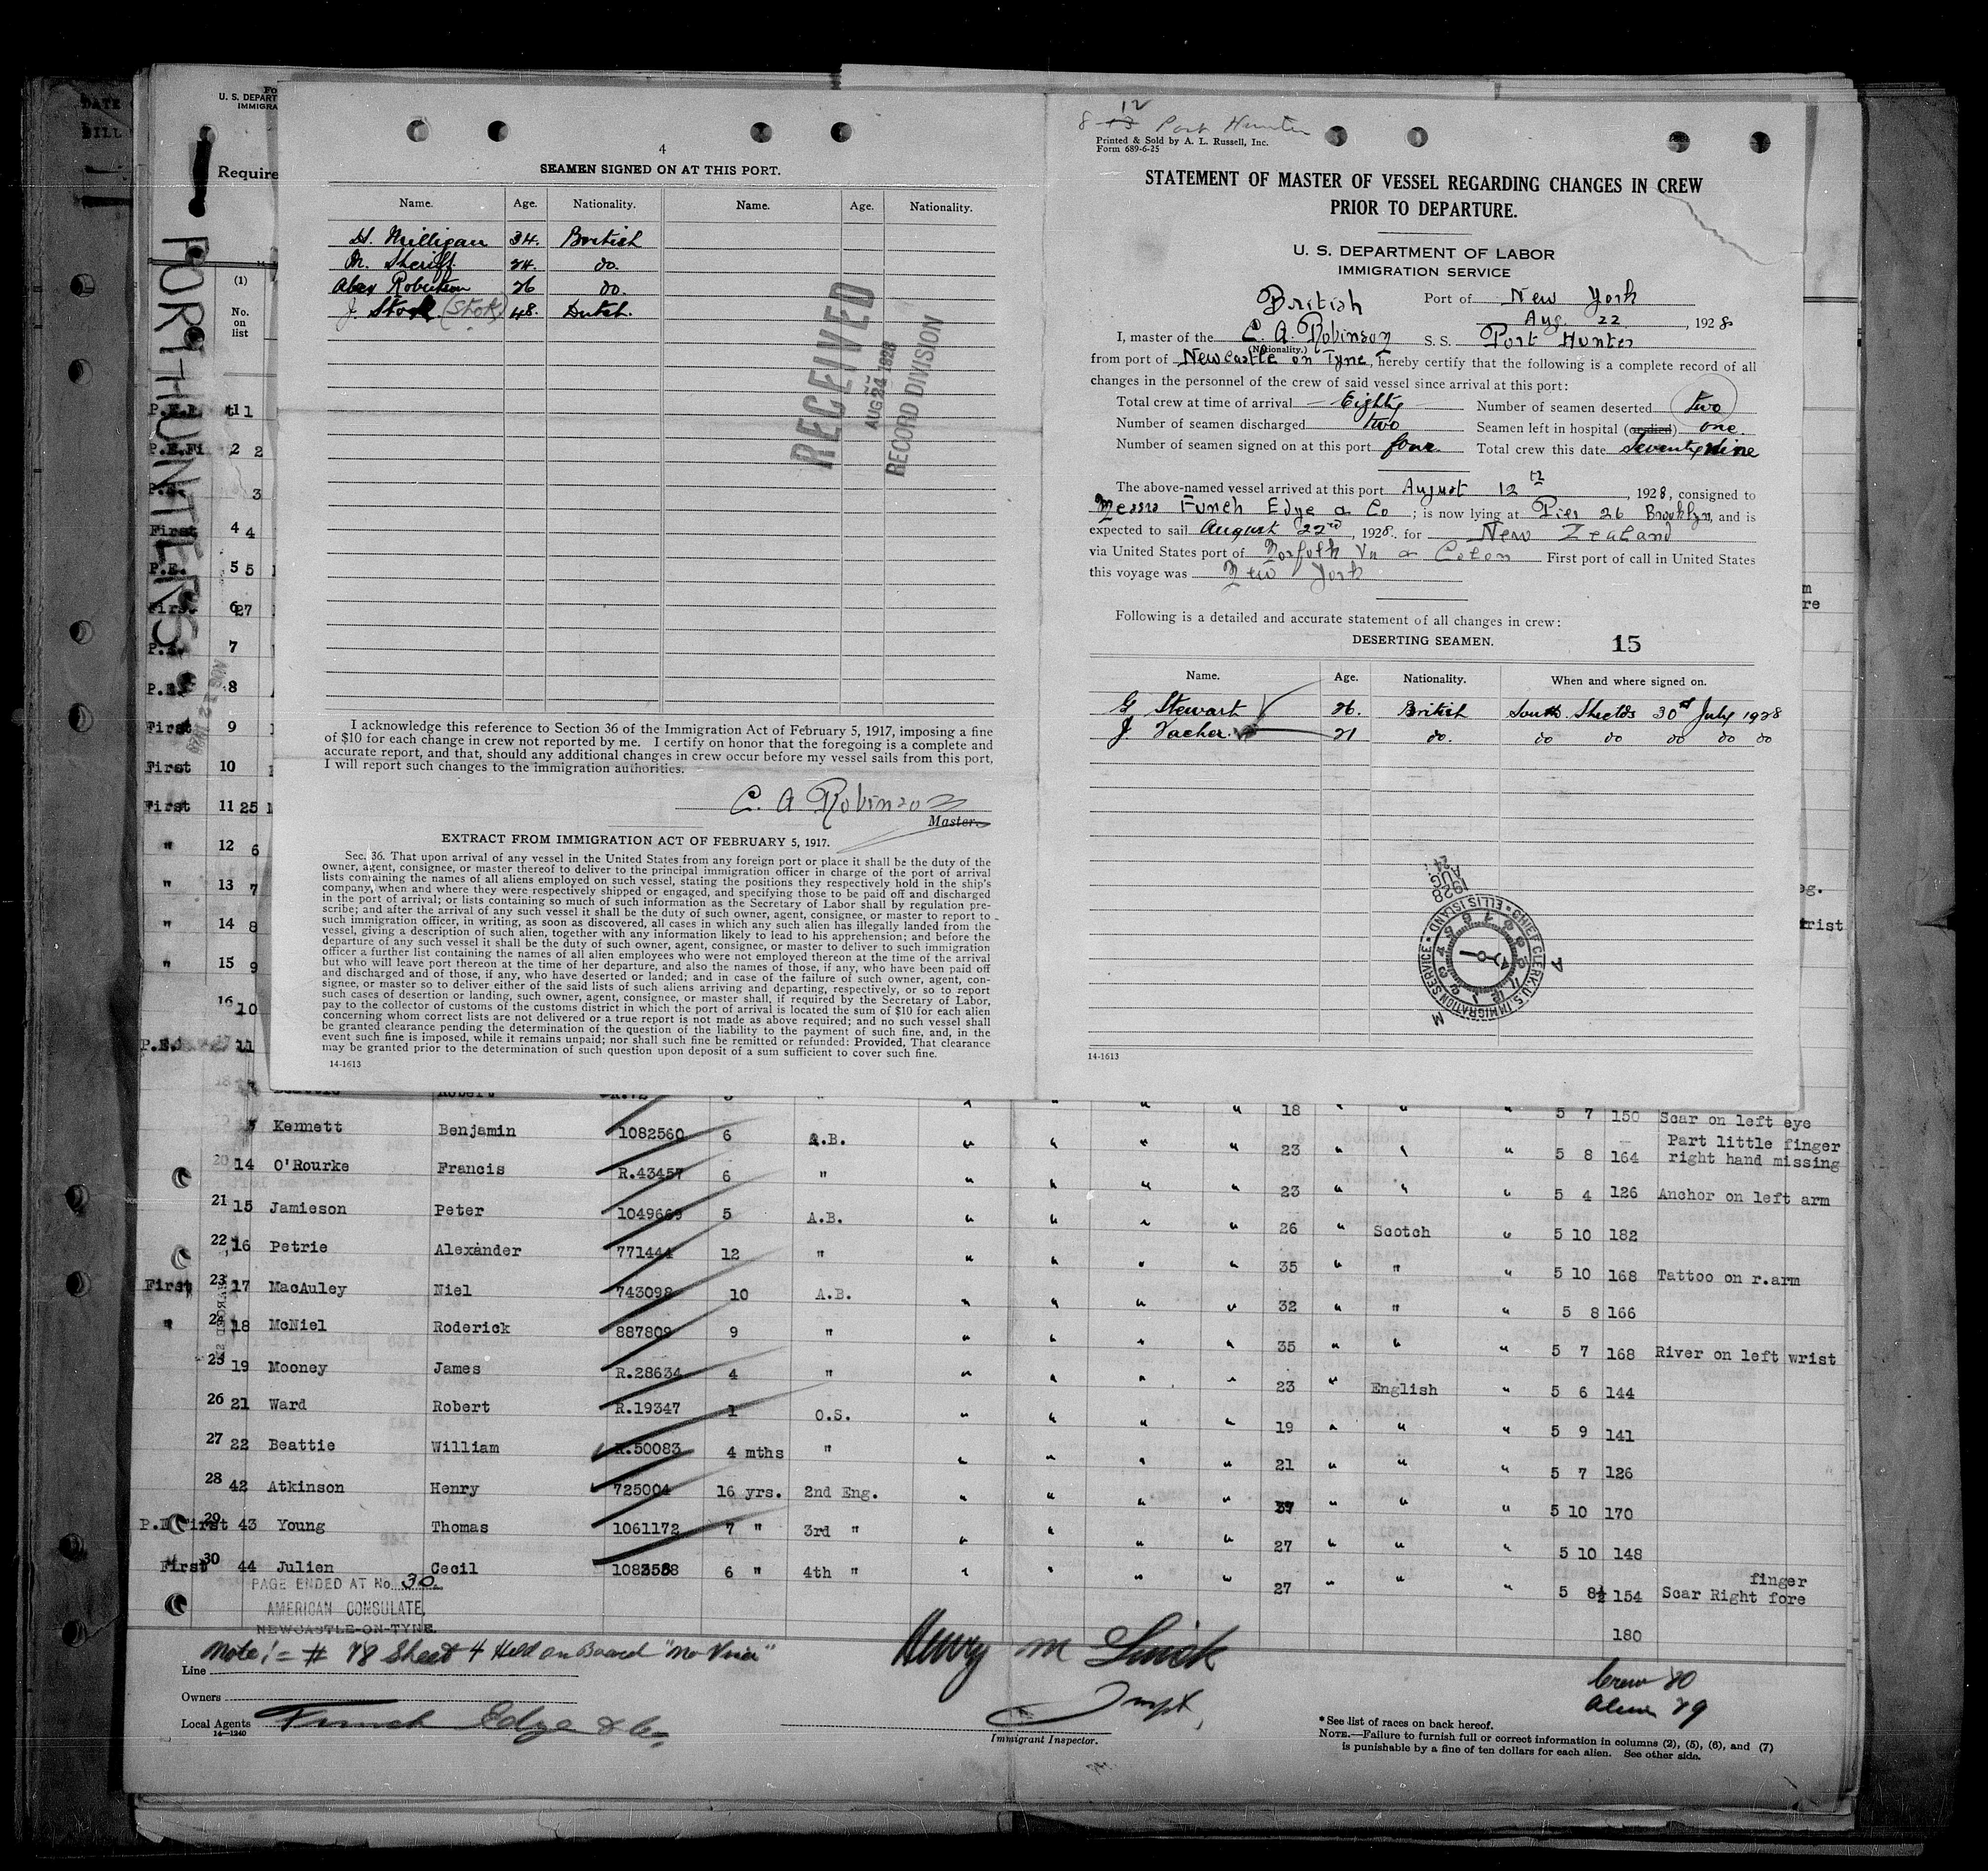 DATE
BILL
Fo
U. S. DEPART
IMMIGRA
Require
PORT HUNTER
(1)
No.
on
list
4
SEAMEN SIGNED ON AT THIS PORT.
Name. Age. Nationality. Name. Age. Nationality.
H. Milligan 34. British
M. Sheriff. 24. do.
Alex Robertson 26 do.
J. Stook (Stok) 48. Dutch.
RECEIVED
AUG 24 1928
RECORD DIVISION
I acknowledge this reference to Section 36 of the Immigration Act of February 5, 1917, imposing a fine
of $10 for each change in crew not reported by me. I certify on honor that the foregoing is a complete and
accurate report, and that, should any additional changes in crew occur before my vessel sails from this port,
I will report such changes to the immigration authorities.
C. A Robinson
Master.
EXTRACT FROM IMMIGRATION ACT OF FEBRUARY 5, 1917.
Sec. 36. That upon arrival of any vessel in the United States from any foreign port or place it shall be the duty of the
owner, agent, consignee, or master thereof to deliver to the principal immigration officer in charge of the port of arrival
lists containing the names of all aliens employed on such vessel, stating the positions they respectively hold in the ship's
company, when and where they were respectively shipped or engaged, and specifying those to be paid off and discharged
in the port of arrival; or lists containing so much of such information as the Secretary of Labor shall by regulation pre-
scribe; and after the arrival of any such vessel it shall be the duty of such owner, agent, consignee, or master to report to
such immigration officer, in writing, as soon as discovered, all cases in which any such alien has illegally landed from the
vessel, giving a description of such alien, together with any information likely to lead to his apprehension; and before the
departure of any such vessel it shall be the duty of such owner, agent, consignee, or master to deliver to such immigration
officer a further list containing the names of all alien employees who were not employed thereon at the time of the arrival
but who will leave port thereon at the time of her departure, and also the names of those, if any, who have been paid off
and discharged and of those, if any, who have deserted or landed; and in case of the failure of such owner, agent, con-
signee, or master so to deliver either of the said lists of such aliens arriving and departing, respectively, or so to report
such cases of desertion or landing, such owner, agent, consignee, or master shall, if required by the Secretary of Labor,
pay to the collector of customs of the customs district in which the port of arrival is located the sum of $10 for each alien
concerning whom correct lists are not delivered or a true report is not made as above required; and no such vessel shall
be granted clearance pending the determination of the question of the liability to the payment of such fine, and, in the
event such fine is imposed, while it remains unpaid; nor shall such fine be remitted or refunded: Provided, That clearance
may be granted prior to the determination of such question upon deposit of a sum sufficient to cover such fine.
14-1613
12
8 13 Port Hunter
Printed & Sold by A. L. Russell, Inc.
Form 689-6-25
STATEMENT OF MASTER OF VESSEL REGARDING CHANGES IN CREW
PRIOR TO DEPARTURE.
U. S. DEPARTMENT OF LABOR
IMMIGRATION SERVICE
British Port of New York
Aug 22, 1928
I, master of the C. A. Robinson S. S. Port Hunter
(Nationality.)
from port of Newcastle on Tyne, hereby certify that the following is a complete record of all
changes in the personnel of the crew of said vessel since arrival at this port:
Total crew at time of arrival Eighty Number of seamen deserted two
Number of seamen discharged two Seamen left in hospital (or died) one.
Number of seamen signed on at this port four. Total crew this date Seventy Nine
The above-named vessel arrived at this port August 12th, 1928, consigned to
Messrs Funch Edye & Co; is now lying at Pier 26 Brooklyn, and is
expected to sail August 22nd, 1928. for New Zealand
via United States port of Norfolk Va & Colon First port of call in United States
this voyage was New York
Following is a detailed and accurate statement of all changes in crew:
DESERTING SEAMEN. 15
Name. Age. Nationality. When and where signed on.
G Stewart 26. British South Shields 30th July 1928
J. Vacher. 21 do. do do do do do
CHIEF CLERK U.S. IMMIGRATION SERVICE ELLIS ISLAND
1928
AUG
24
14-1613
P.E. 1 1
2 2
3
First 4 4
P.E. 5 5
First 6 27
7
8
First 9
First 10
First 11 25
" 12 6
" 13 7
" 14 8
" 15 9
16 10
11
wrist
Robert 18 5 7 150 Scar on left eye
Kennett Benjamin 1082560 6 A.B. " " " " 23 " " " 5 8 164 Part little finger
right hand missing
20 14 O'Rourke Francis R.43457 6 " " " " " 23 " " " 5 4 126 Anchor on left arm
21 15 Jamieson Peter 1049669 5 A.B. " " " " 26 " Scotch " 5 10 182
22 16 Petrie Alexander 771444 12 " " " " " 35 " " " 5 10 168 Tattoo on r.arm
First 23 17 MacAuley Niel 743098 10 A.B. " " " " 32 " " " 5 8 166
" 24 18 McNiel Roderick 887809 9 " " " " " 35 " " " 5 7 168 River on left wrist
25 19 Mooney James R.28634 4 " " " " " 23 " English " 5 6 144
26 21 Ward Robert R.19347 1 O.S. " " " " 19 " " " 5 9 141
27 22 Beattie William R.50083 4 mths " " " " " 21 " " " 5 7 126
28 42 Atkinson Henry 725004 16 yrs. 2nd Eng. " " " " 39 " " " 5 10 170
P.E First 29 43 Young Thomas 1061172 7 " 3rd " " " " " 27 " " " 5 10 148
First 30 44 Julien Cecil 1083588 6 " 4th " " " " " 27 " " " 5 8½ 154 Scar Right fore finger
180
PAGE ENDED AT No. 30.
AMERICAN CONSULATE,
NEWCASTLE-ON-TYNE.
Note:= # 78 Sheet 4 Held on Board "No Visa"
Line
Owners
Local Agents Funch Edye & Co.
14-1240
Henry M
Immigrant Inspector.
Crew 80
Alien 79
*See list of races on back hereof.
NOTE.—Failure to furnish full or correct information in columns (2), (5), (6), and (7)
is punishable by a fine of ten dollars for each alien. See other side.